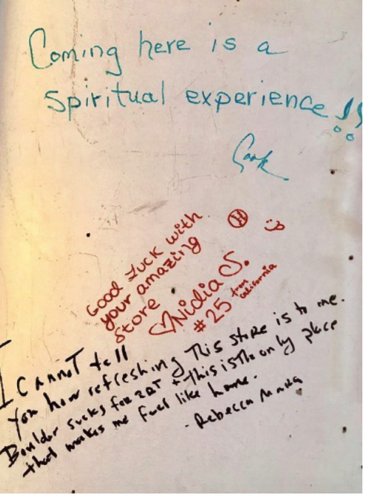 Coming here is a
spiritual experience!!
Good Luck with
your amazing
store
Nidia S.
#25 from
California
I cannot tell
you how refreshing this store is to me.
Bouldor sucks for + This is the only place
that makes me fuel like home.
- Rebecca